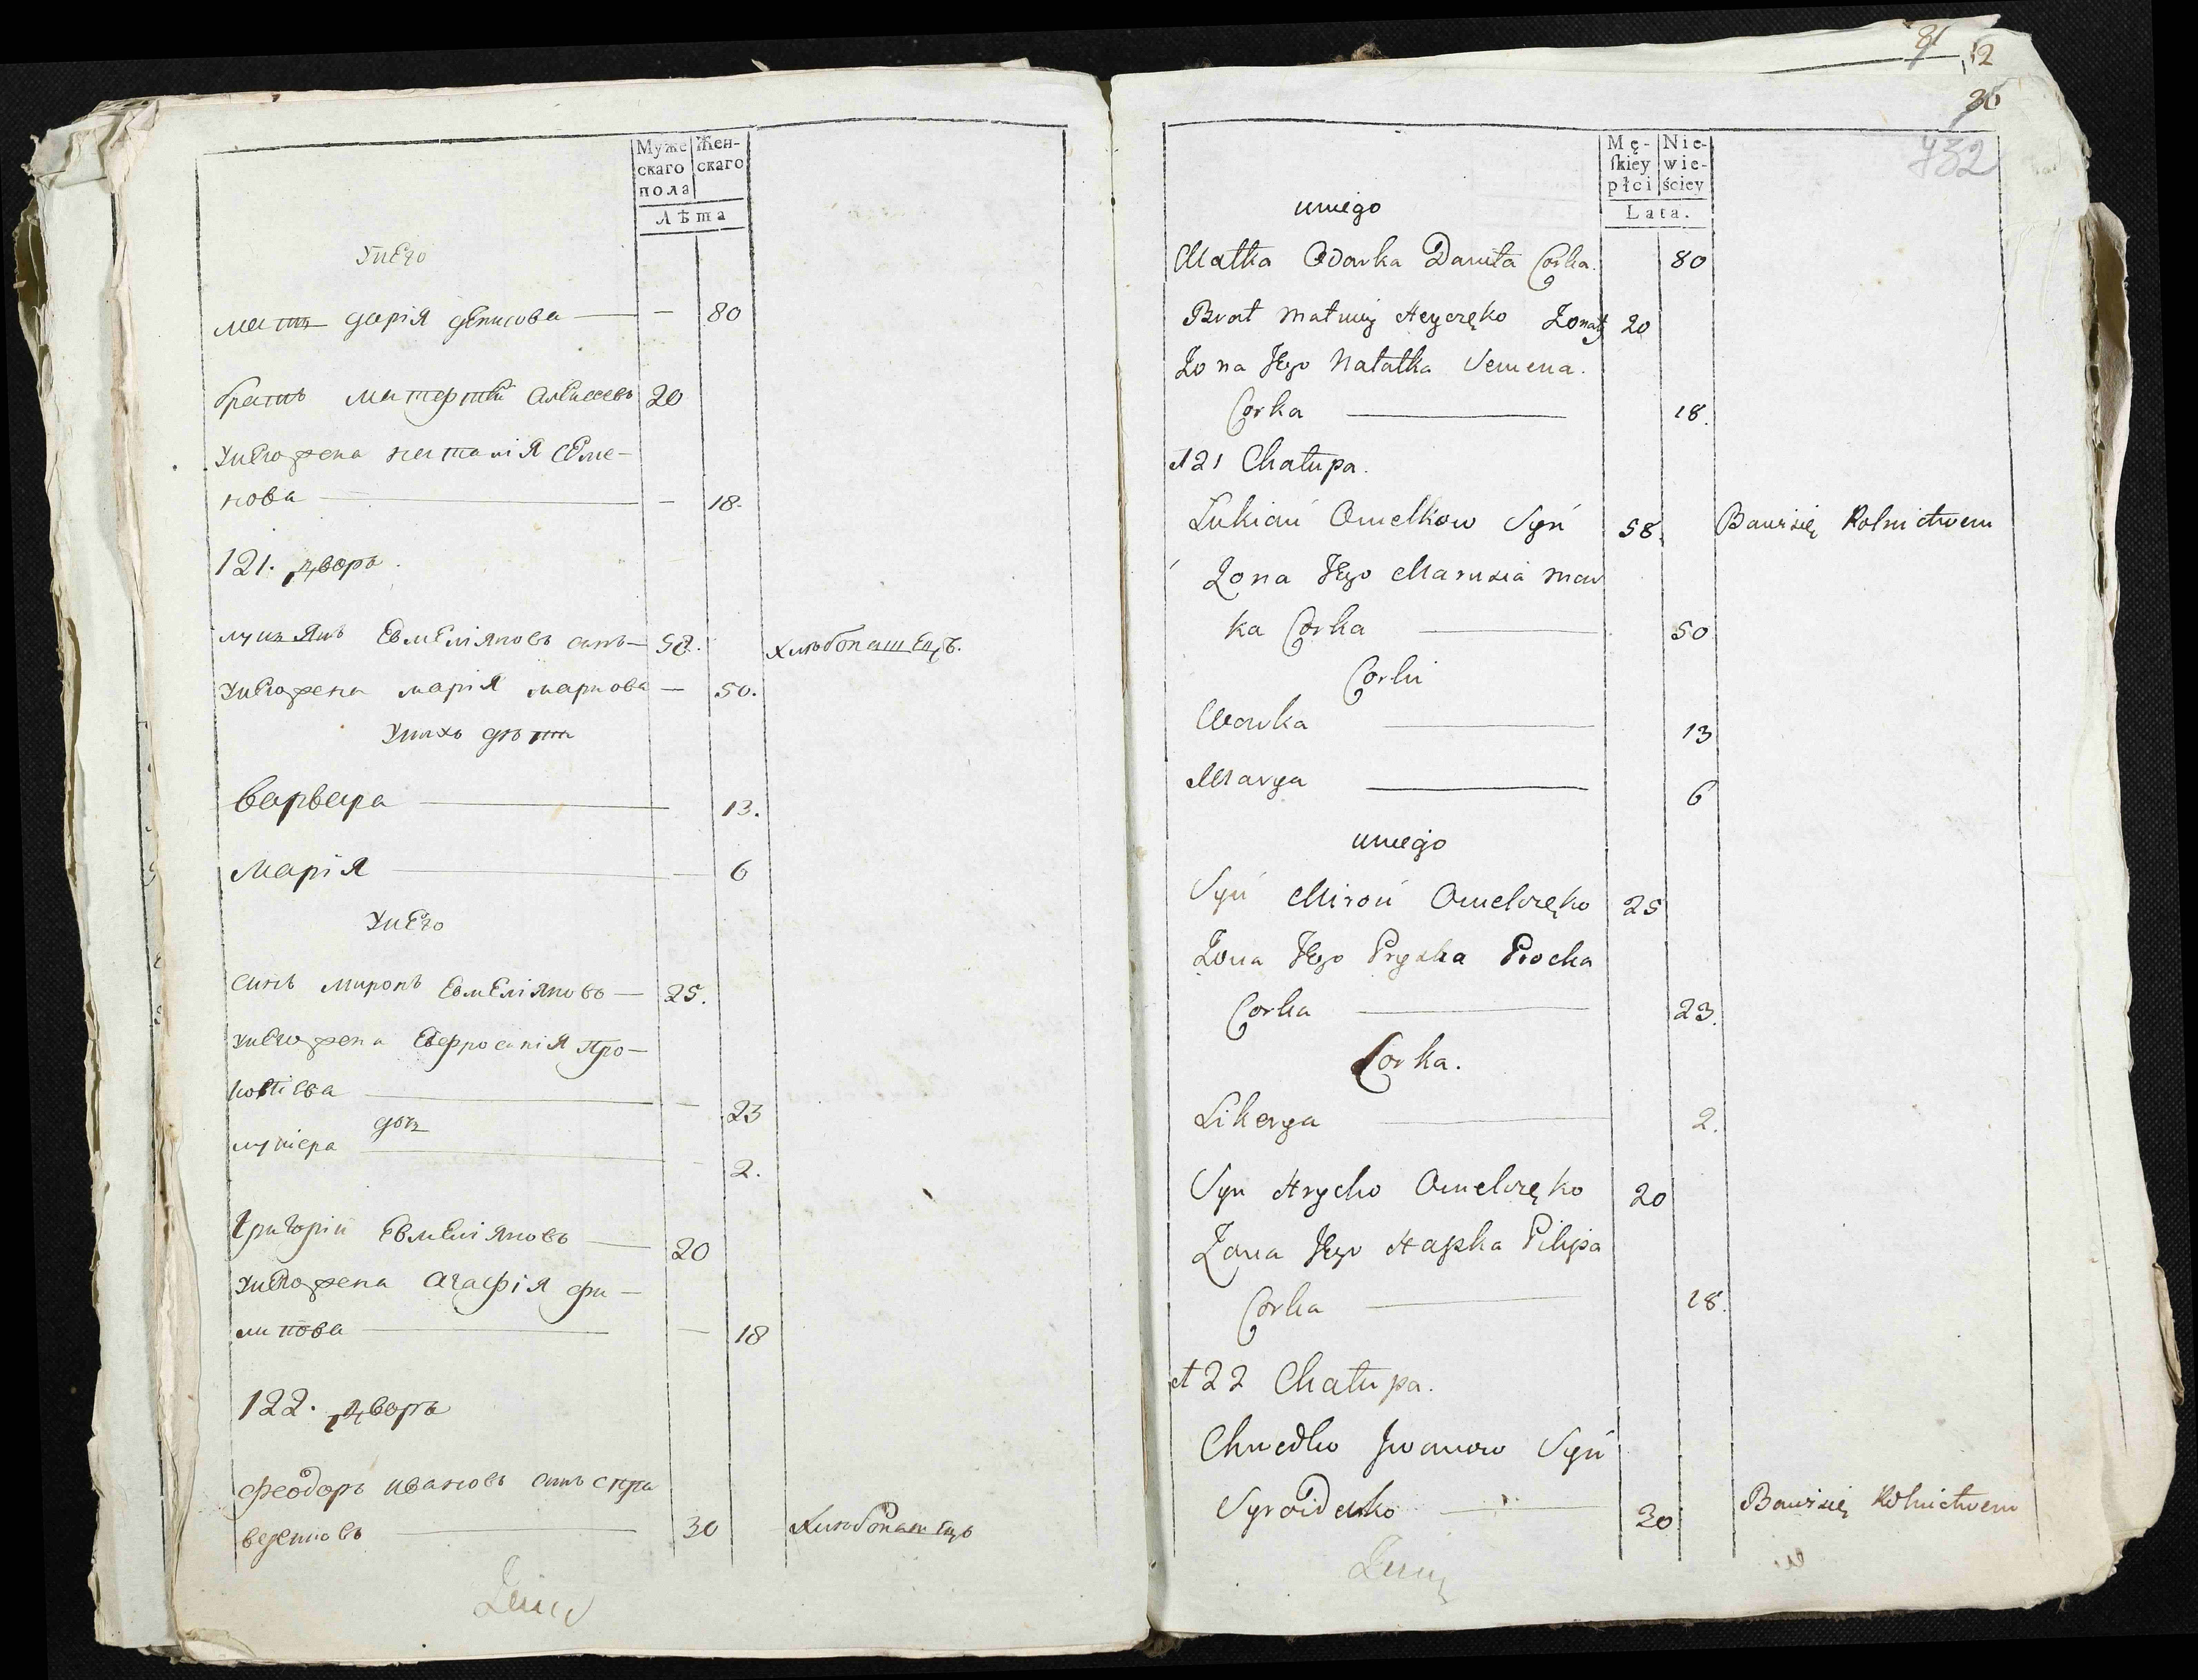 Муже
скаго
пола
Жен-
скаго
Лѣта
Унего
мать дарія денисова — — 80
братъ матфтей алексеевъ 20
Унего жена наталія Семе-
нова — — 18.
121. дворъ.
лукьянъ Евмеліановъ синъ — 58. хлѣбопашецъ.
Унего жена марія маркова — 50.
Унихъ дѣти
варвара — 13.
марія — — 6
Унего
синъ миронъ Евмеліяновъ — 25.
Унего жена Евфросинія про-
копіева — — 23
дочь
лукіера — — 2.
григорій Евмеліяновъ — 20
Унего жена агафія фи-
липова — — 18
122. дворъ
феодоръ ивановъ синъ
— 30 Хлѣбопашецъ
81
12
30
732
Mę-
skiey
płci
Nie-
wie-
ściey
Lata.
uniego
Matka Odarka Daniła Corka. 80
Brat Matwiy Żonaty 20
Żona Jego Natałka Semena.
Corka — 18.
121 Chałupa.
Łukian Omelkow Syn 58. Bawi się Rolnictwem
Żona Jego Marusia Mar
ka Corka — 50
Corki
Warka — 13
Marya — 6
uniego
Syn Miron Omelczęko 25
Żona Jego Pryska Procka
Corka — 23.
Corka.
Likerya — 2.
Syn Hrycko Omelczęko 20
Żona Jego Hapka Pilipa
Corka — 18.
122 Chałupa.
Chwedko Jwanow Syn
Syroidenko — 30 Bawi się Rolnictwem